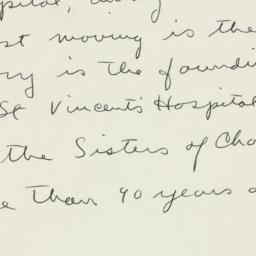 spital,
st moving is the
ry is the foundi
St Vincent's Hospital
the Sisters of Cha
e than 90 years a